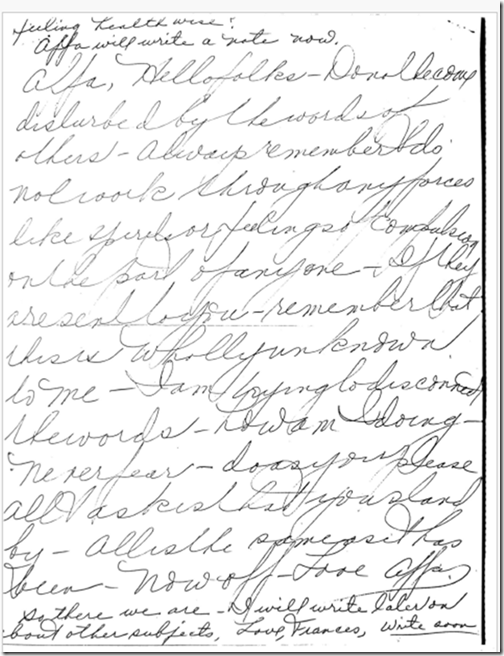 feeling healthwise?
Affa will write a note now.
Affa, Hello folks - Do not become
disturbed by the words of
others - Always remember I do
not work through any forces
like spirits or feelings of compulsion
on the part of anyone - If they
are sent to you - remember that
this is wholly unknown
to me - I am trying to disconnect
the words - How am I doing -
Never fear - do as you please
all I ask is that you stand
by - All is the same as it has
been - Now off - Love Affa.
So there we are - I will write later on
about other subjects, Love Frances, Write soon